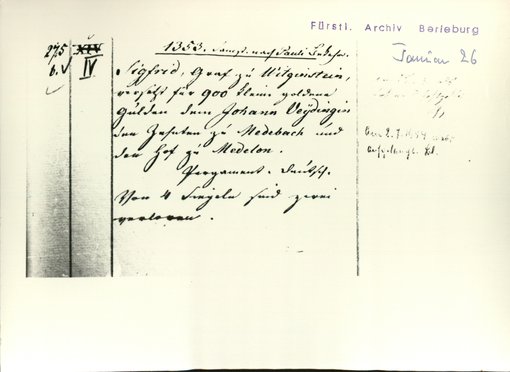 Fürstl. Archiv Berleburg
Januar 26
275
b. √
XIV
IV
1353. Samst. nach Pauli Bekehr.
Sigfrid, Graf zu Witgenstein,
versetzt für 900 kleine goldene
Gulden dem Johann
den Zehnten zu Medebach und
den Hof zu Medelon.
Pergament. Deutsch.
Von 4 Siegeln sind zwei
verloren.